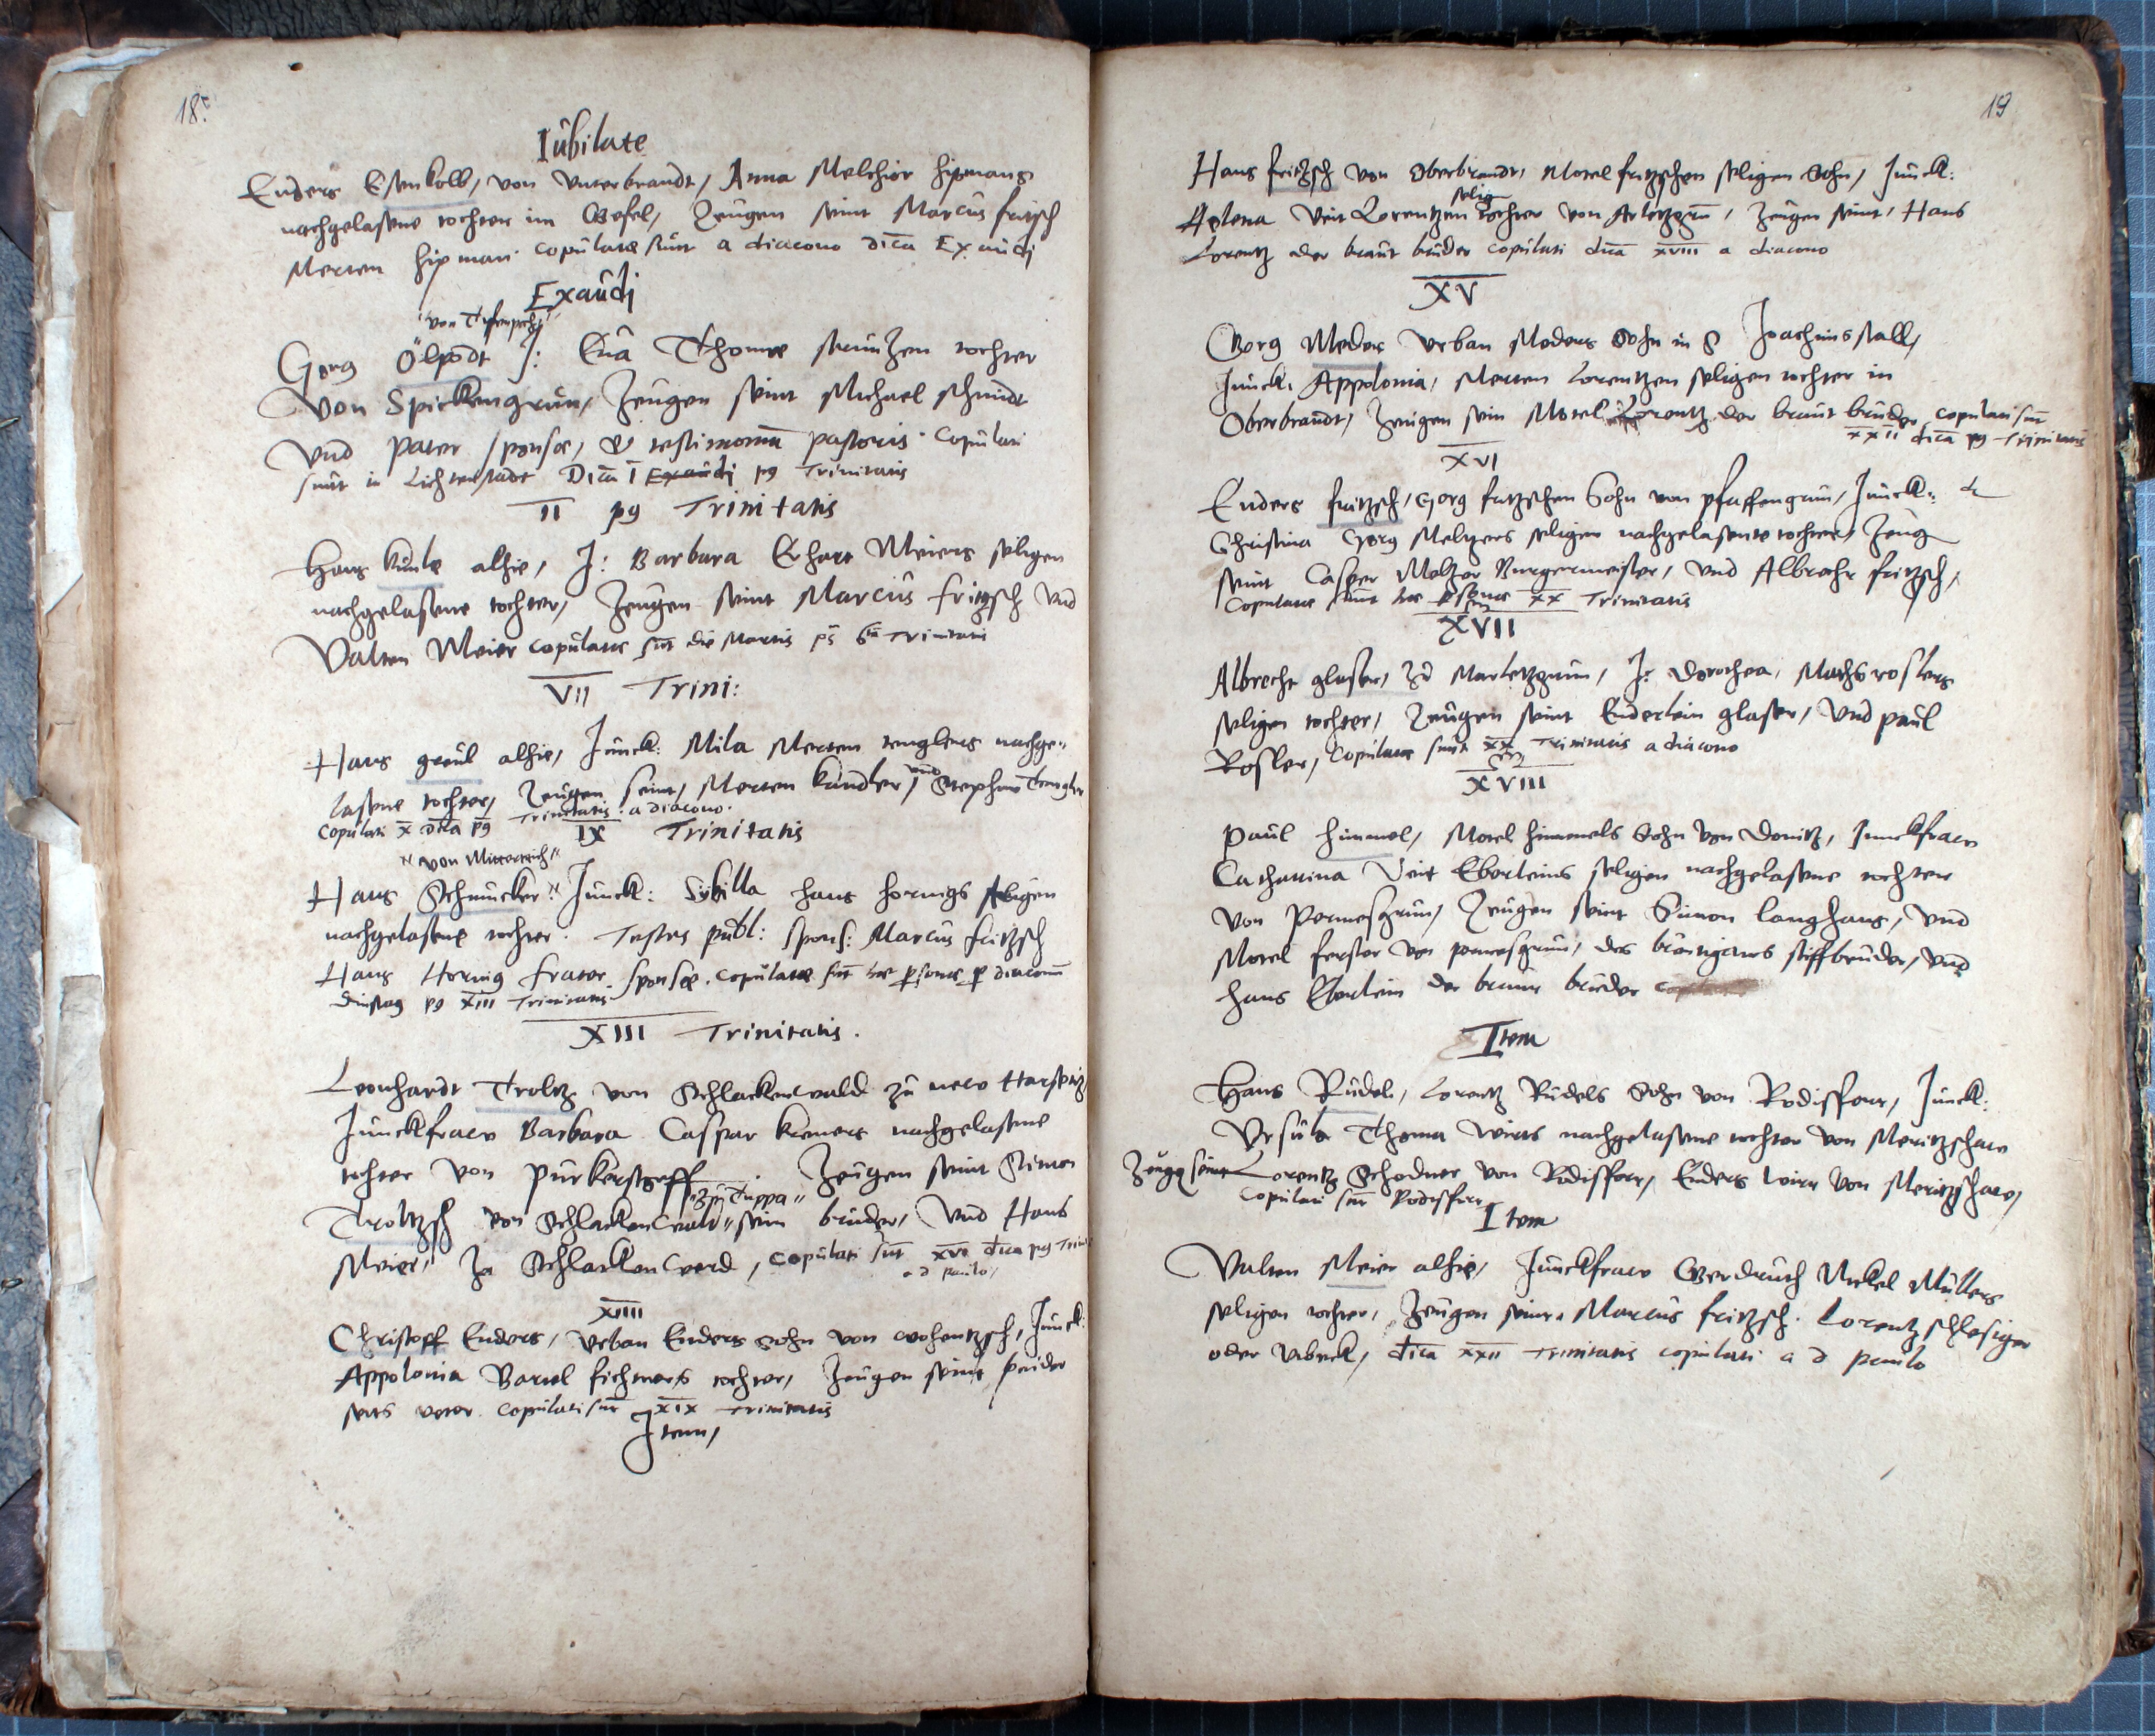 18.
Iubilate
Enders Esenkolb, von Unterbrandt, Anna Melchior hipmans
nachgelasene tochter im Gesel, Zeugen seint Marcus fritzsch
Merten hipman copulatae sunt a diacono dica Exaudj
Exaudj
Gorg Ölpodt J: Eua Thomae tochter
Von Spickengrun, Zeugen seint Michael schmidt
Vnd pater sponsae, & testimoniu pastoris. Copulati
sunt in Lichtenstadt Dica I Exaudj pg Trinitatis
II pg Trinitatis
Hans alhie, J: Barbara Erhart Meiers seligen
nachgelasene tochter, Zeugen seint Marcus fritzsch Vnd
Valten Meier copulatae sut die Martis ps 6ta Trinitatis
VII Trini:
Hans greul alhie, Junck: Mila Merten tenglers nachge-
lasene tochter, Zeugen seint, Merten kandler, vnd Stephan Tengler
Copulati X dica pg Trinitatis a diacono.
IX Trinitatis
"von Mitterteich"
Hans Schmucker" Junck: Sybilla hans hornigs seligen
nachgelasene tochter. Testes publ: spons: Marcus fritzsch
Hans Hornig frater sponsae. copulatae sut hae psonae p diaconu
dinstag pg XIII Trinitatis.
XIII Trinitatis.
Leonhardt Troltzsch von Schlackenwald zu new
Junckfraw Barbara Caspar nachgelasene
tochter von Zeugen seint Simon
"zu Tuppa"
Troltzsch von Schlackenwald" sein bruder, Vnd Hans
Meier" Zu Schlackenwerd, copulati sut XVI dica pg Trini
a d paulo,
XIIII
Christoff Enders, Urban Enders Sohn von, Junck:
Appolonia Bartel fichtners tochter, Zeugen seint peider
seits veter. copulati sut XIX Trinitatis
Item,
19
Hans fritzsch von Oberbrandt, Motel fritzschen seligen Sohn, Junck:
selig
Helena Veit Lorentzen tochter von, Zeugen seint, Hans
Lorentz der braut bruder copulati dica XVIII a diacono
XV
Georg Meder Urban Meders Sohn in S Joachimsstall,
Junck: Appolonia, Merten Lorentzen seligen tochter in
Oberbrandt, Zeugen sein Motel Lorentz der braut bruder, copulati sut
XXII dica pg Trinitatis
XVI
Enders fritzsch, Gorg fritzschen Sohn von pfaffengrun, Junck:
Christina Gorg Meltzers seligen nachgelasene tochter, Zeug
seint Casper Meltzer Burgermeister, Vnd Albrecht fritzsch,
Copulatae sunt hae psonae XX Trinitatis
XVII
Albrecht glaser, zu, J: Dorothea, Mathes roslers
seligen tochter, Zeugen seint Enderlein glaser, Vnd paul
Rosler, Copulatae sunt XX Trinitatis a diacono
XVIII
Paul himmel, Motel himmels Sohn von Donitz, Junckfraw
Catharina Veit Eberleins seligen nachgelasene tochter
von Permesgrun, Zeugen seint Simon langhans, Vnd
Motel ferster von permesgrun, des breutigams stiffbruder, Vnd
hans Eberlein der braut bruder
Item
Hans Rudel, Lorentz Rudels Sohn von Rodissforr, Junck:
Ursula Thoma wirts nachgelasene tochter von
Zeugen seint Lorentz Schodner von Rodissforr, Enders wirt von
Copulati sut Rodissforr
Item
Valten Meier alhie, Junckfraw Gerdruth Nickel Müllers
seligen tochter, Zeugen seint. Marcus fritzsch. Lorentz schlesiger
oder, dica XXII Trinitatis copulati a d paulo